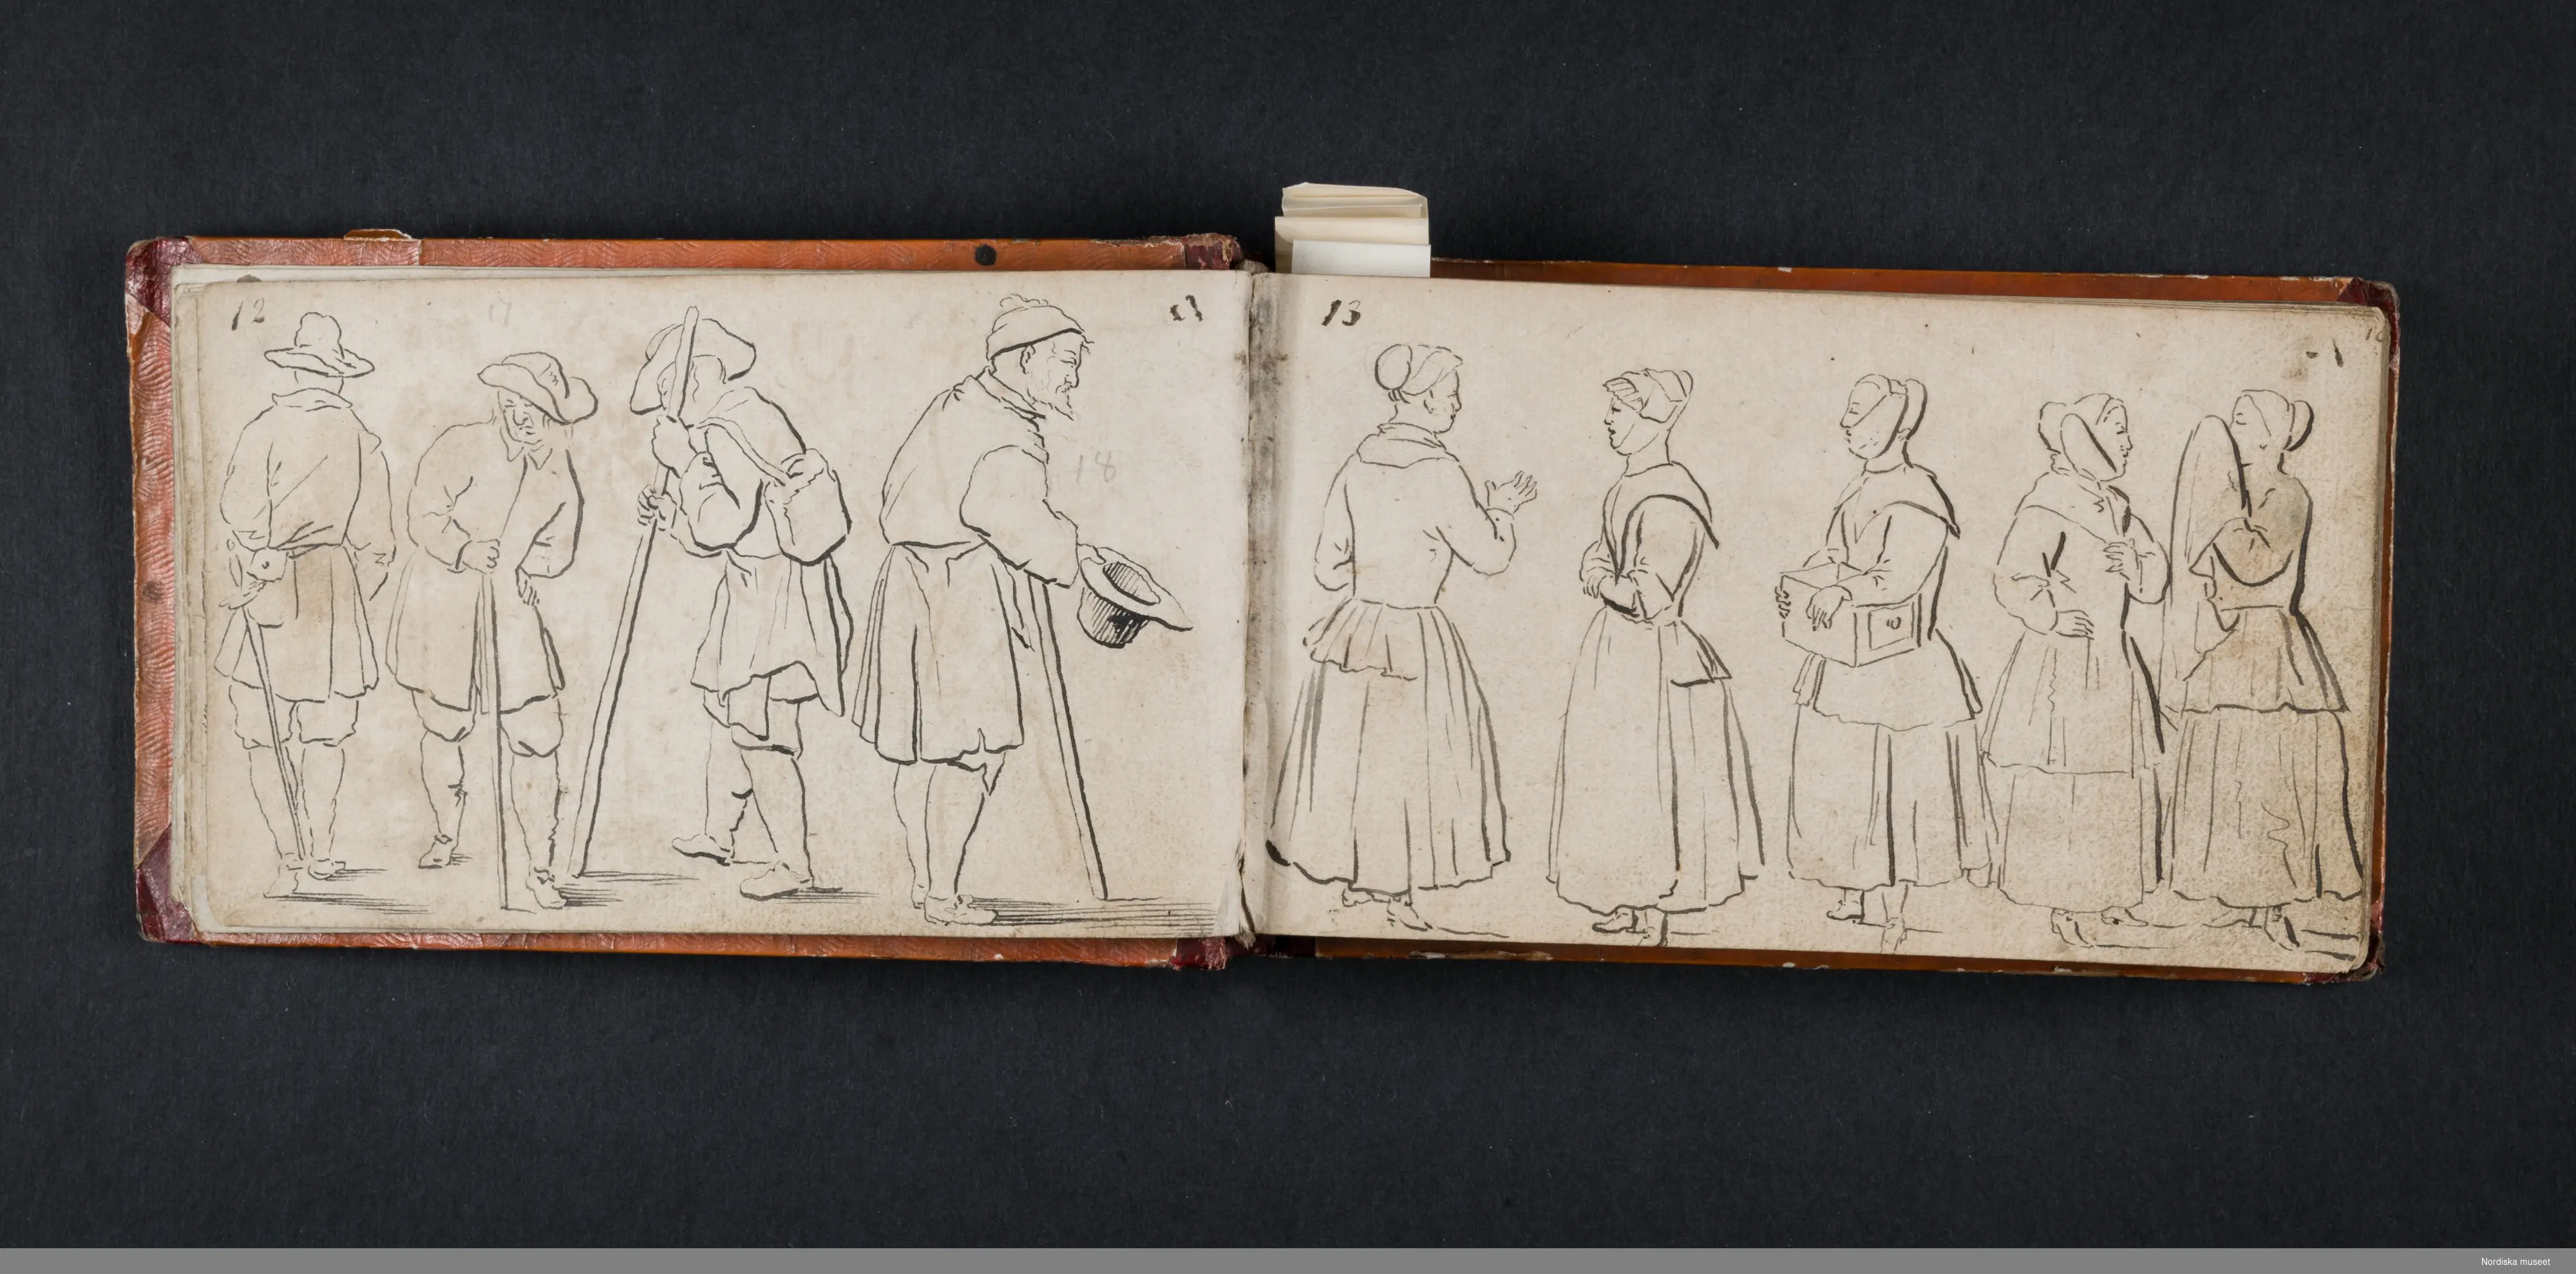 12
17
18
13
Nordiska museet